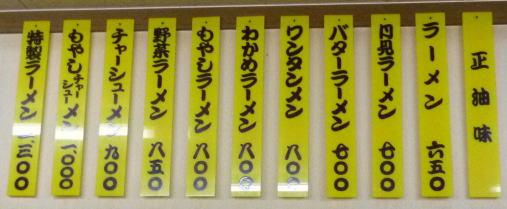 正油味
ラーメン 六五〇
月見ラーメン 七〇〇
バターラーメン 七〇〇
ワンタンメン 八〇〇
わかめラーメン 八〇〇
もやしラーメン 八〇〇
野菜ラーメン 八五〇
チャーシューメン 九〇〇
もやしチャーシューメン 一、〇〇〇
特製ラーメン 一、三〇〇